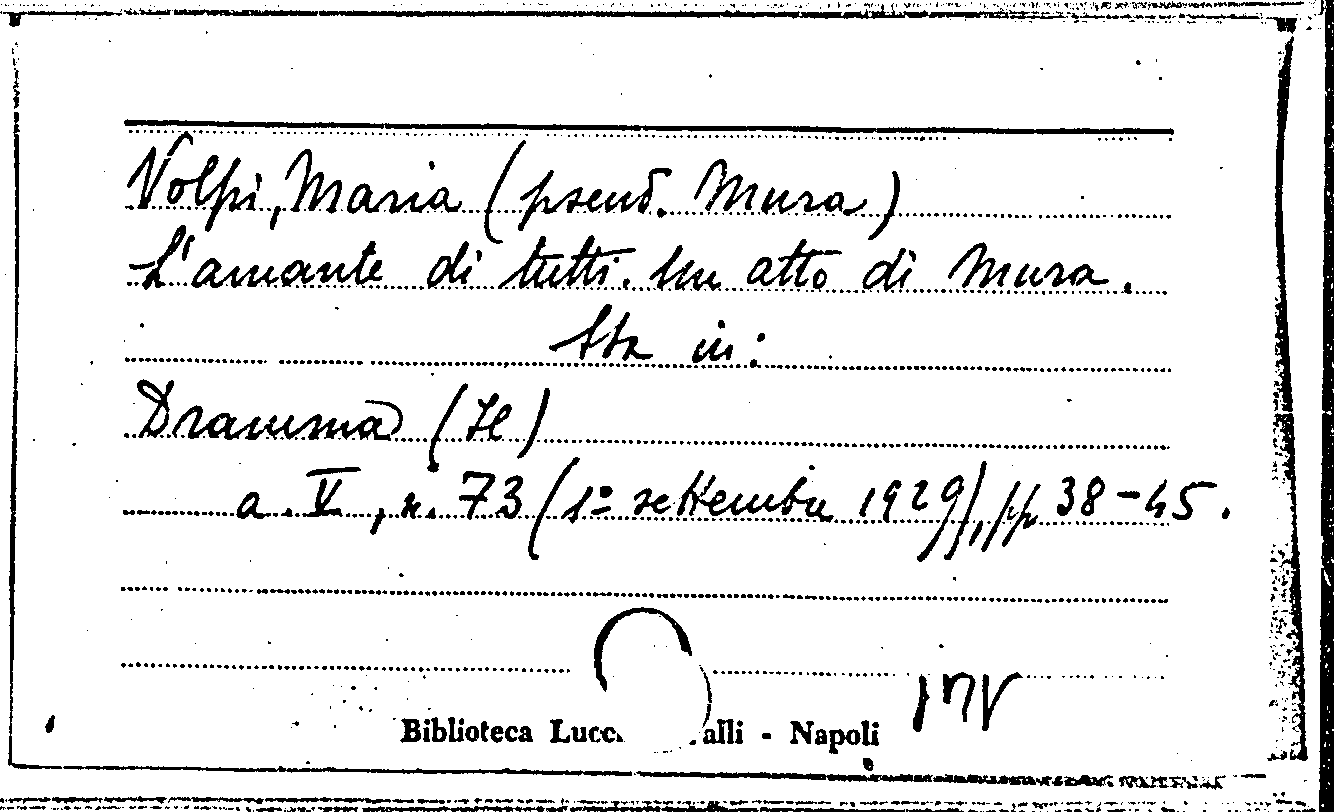 Volpi, Maria (pseud. Mura)
L'amante di tutti. Un atto di Mura.
Sta in:
Dramma (Il)
a. V, n. 73 (1º settembre 1929), pp 38-45.
Biblioteca Lucc alli - Napoli